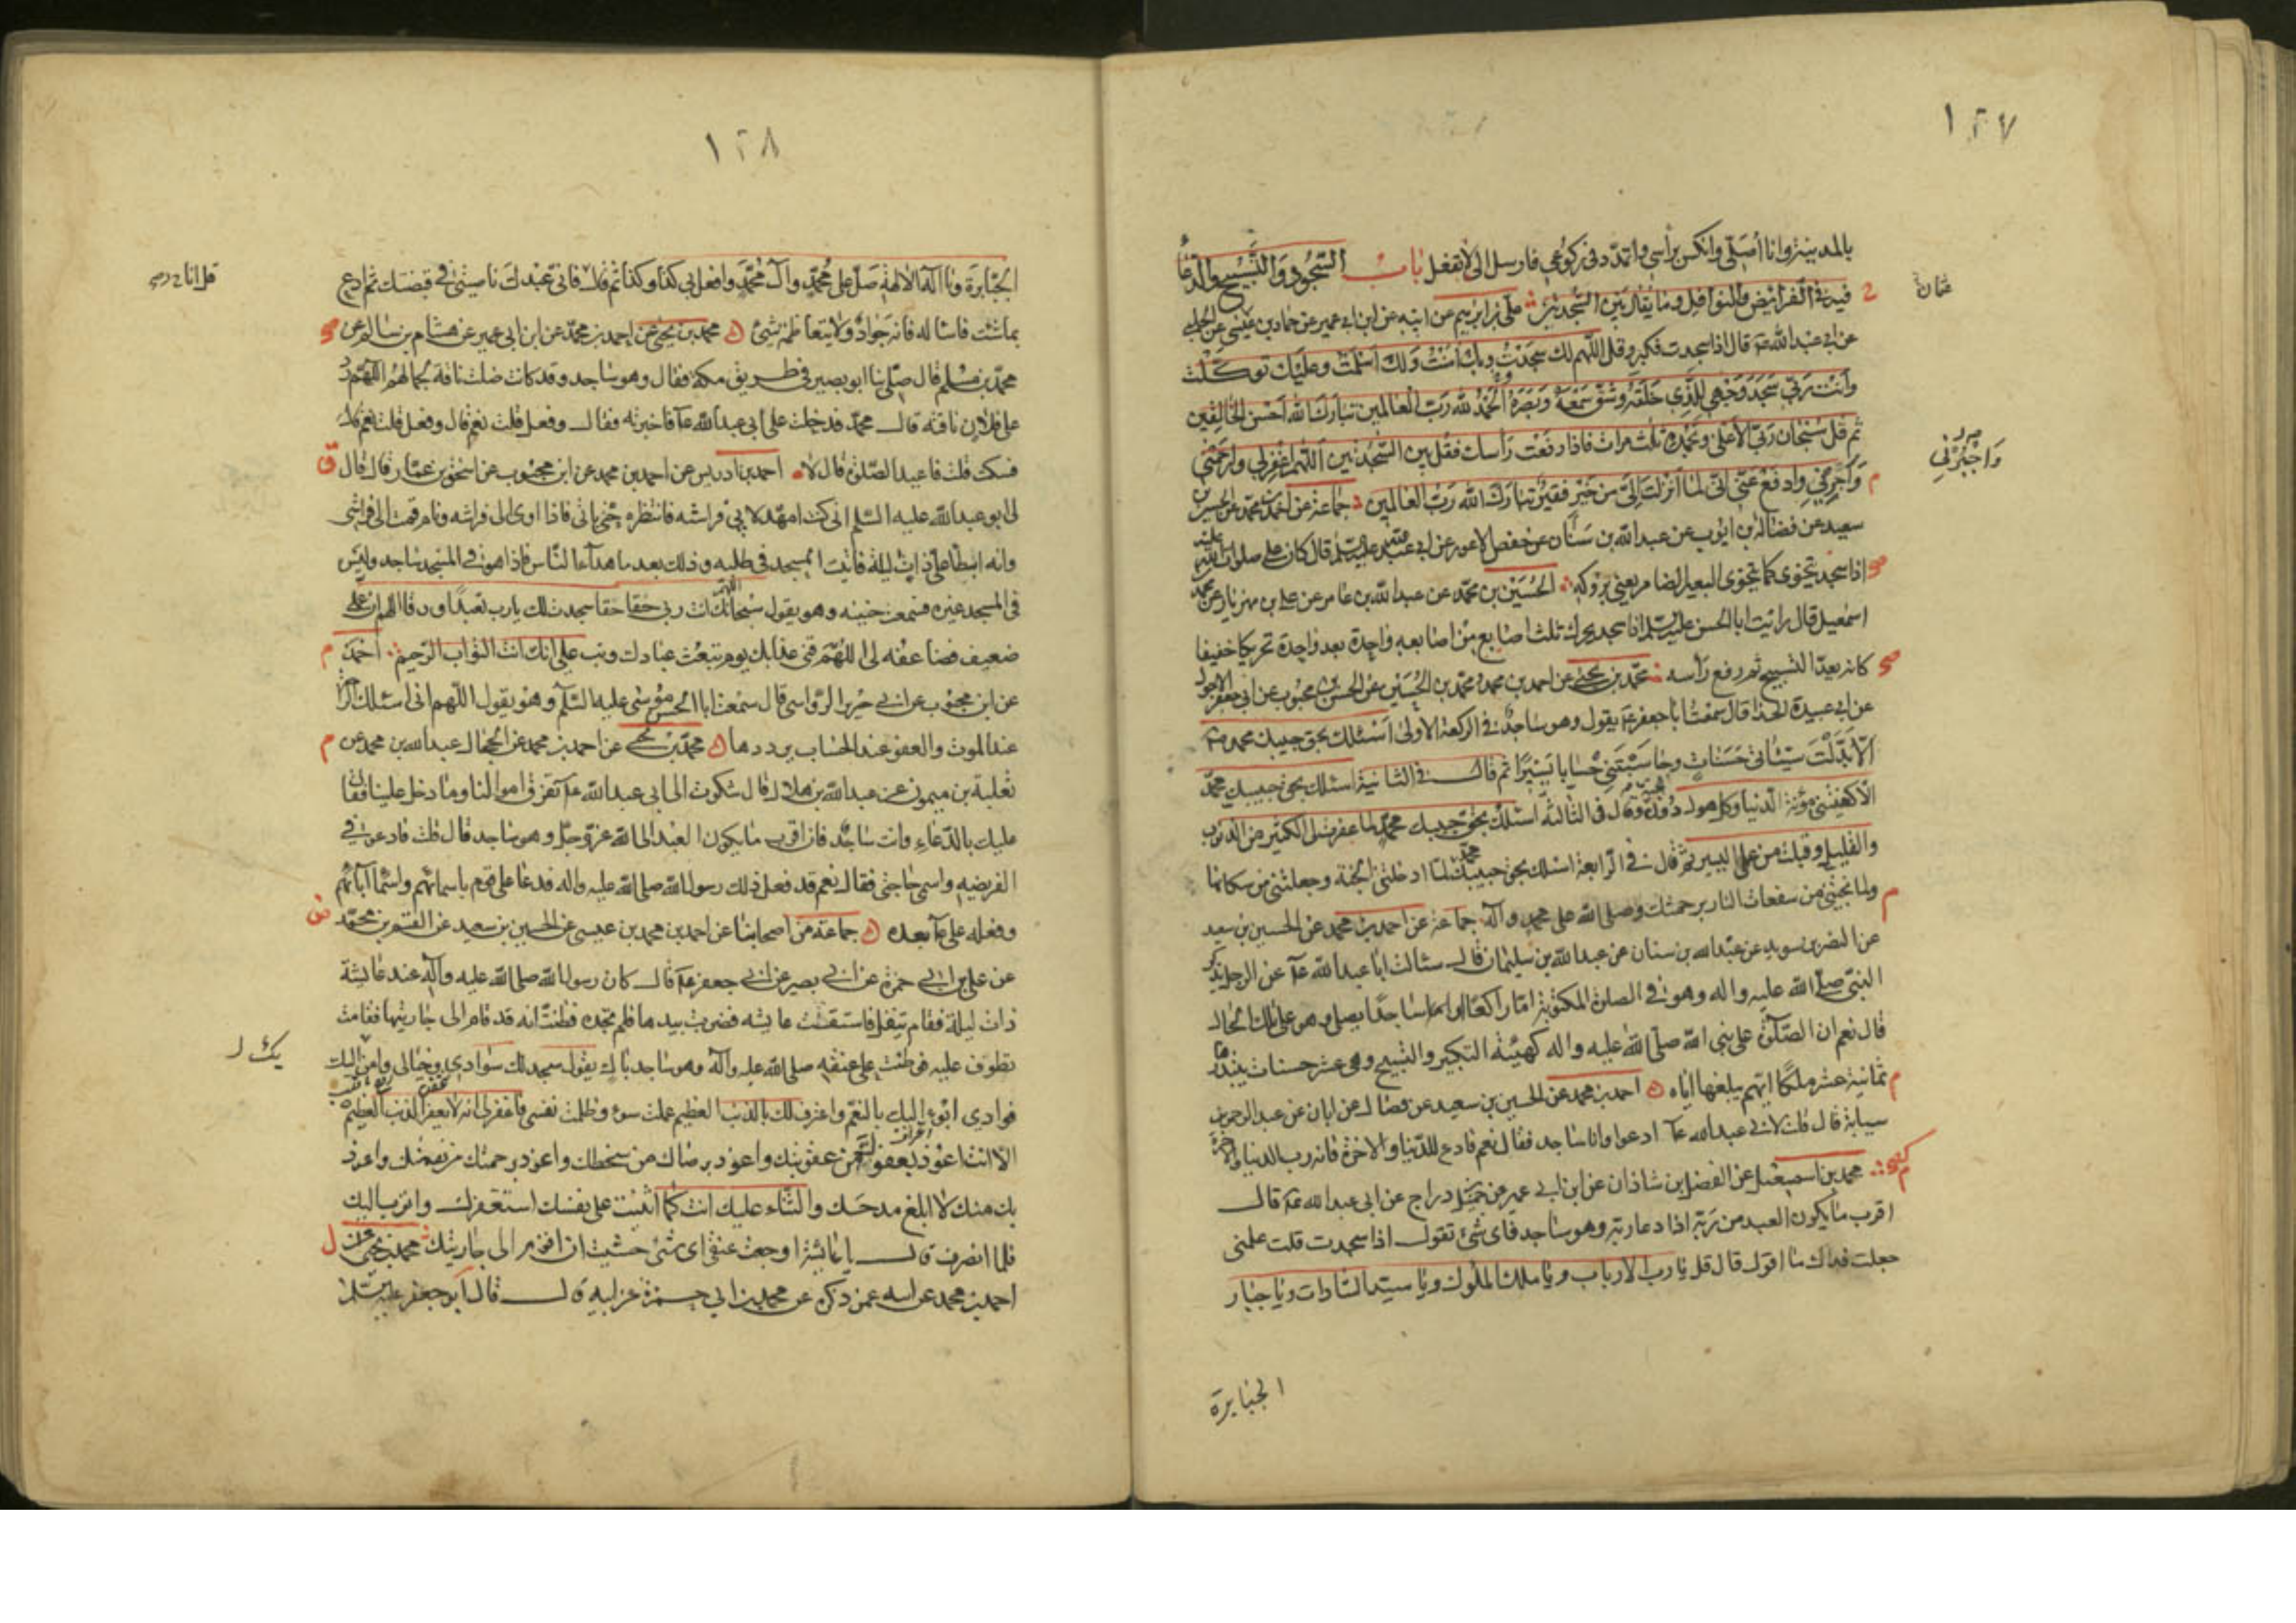 ١٢٧
بالمدينة وانا اصلي وانكس برأسي واتمدد في ركوعي فارسل الي لا تفعل باب السجود والتسبيح والدعا
عثمان
فيه في الفرائض والنوافل وما يقال بين السجدتين علي بن ابرهيم عن ابيه عن ابن ابي عمير عن حماد بن عيسى عن الحلبي
عن ابي عبد الله قال اذا سجدت فكبر وقل اللهم لك سجدت وبك امنت ولك اسلمت وعليك توكلت
وانت ربي سجد وجهي للذي خلقه وشق سمعه وبصره الحمد لله رب العالمين تبارك الله احسن الخالقين
ثم قل سبحان ربي الاعلى وبحمده ثلث مرات فاذا رفعت رأسك فقل بين السجدتين اللهم اغفر لي وارحمني
واجبرني
واجرني وادفع عني اني لما انزلت الي من خير فقير تبارك الله رب العالمين جماعة عن احمد بن محمد عن الحسين بن
سعيد عن فضالة بن ايوب عن عبد الله بن سنان عن حفص الاعور عن ابي عبد الله عليه السلم قال كان علي صلوات الله عليه
اذا سجد يتخوى كما يتخوى البعير الضامر يعني بروكه الحسين بن محمد عن عبد الله بن عامر عن علي بن مهزيار عن محمد
اسمعيل قال رايت ابا الحسن عليه السلم اذا سجد يحرك ثلث اصابع من اصابعه واحدة بعد واحدة تحريكا خفيفا
كانه يعد التسبيح ثم رفع رأسه محمد بن يحيى عن احمد بن محمد ومحمد بن الحسين عن الحسن بن محبوب عن ابي جعفر الاحول
عن ابي عبيدة الحذا قال سمعت ابا جعفر يقول وهو ساجد في الركعة الاولى اسئلك بحق حبيبك محمد
الا بدلت سيئاتي حسنات وحاسبتني حسابا يسيرا ثم قال في الثانية اسئلك بحق حبيبك محمد
الا كفيتني مؤنة الدنيا وكل هول دون الجنة وقال في الثالثة اسئلك بحق حبيبك محمد لما غفرت لي الكثير من الذنوب
والقليل وقبلت من عملي اليسير ثم قال في الرابعة اسئلك بحق حبيبك محمد لما ادخلتني الجنة وجعلتني من سكانها
ولما نجيتني من سفعات النار برحمتك وصلى الله على محمد وآله جماعة عن احمد بن محمد عن الحسين بن سعيد
عن النضر بن سويد عن عبد الله بن سنان عن عبد الله بن سليمان قال سئالت ابا عبد الله عن الرجل يذكر
النبي صلى الله عليه واله وهو في الصلوة المكتوبة اما راكعا واما ساجدا يصلي وهو على تلك الحال
قال نعم ان الصلوة على نبي الله صلى الله عليه واله كهيئة التكبير والتسبيح وهي عشر حسنات يبتدرها
ثمانية عشر ملكا ايهم يبلغها اياه احمد بن محمد عن الحسين بن سعيد عن فضالة عن ابان عن عبد الرحمن بن
سيابة قال قلت لابي عبد الله ادعوا وانا ساجد فقال نعم فادع للدنيا والاخرة فانه رب الدنيا والاخرة
محمد بن اسمعيل عن الفضل بن شاذان عن ابن ابي عمير عن جميل دراج عن ابي عبد الله قال
اقرب ما يكون العبد من ربه اذا دعا ربه وهو ساجد فاى شئ تقول اذا سجدت قلت علمني
جعلت فداك ما اقول قال قل يا رب الارباب ويا ملك الملوك ويا سيد السادات ويا جبار
الجبابرة
١٢٨
الجبابرة ويا اله الالهة صل على محمد وآل محمد وافعل بي كذا وكذا ثم قل فاني عبدك ناصيتي في قبضتك ثم ادع
بما شئت فاسئاله فانه جواد ولا يتعاظمه شئ محمد بن يحيى عن احمد بن محمد عن ابن ابي عمير عن هشام بن سالم عن
محمد بن مسلم قال صلى بنا ابو بصير في طريق مكة فقال وهو ساجد وقد كانت ضلت ناقة لجمالهم اللهم رد
على فلان ناقته قال محمد فدخلت على ابي عبد الله فاخبرته فقال وفعل قلت نعم قال وفعل قلت نعم قال
فسكت قلت فاعيد الصلوة قال لا احمد بن ادريس عن احمد بن محمد عن ابن محبوب عن اسحق بن عمار قال قال
لي ابو عبد الله عليه السلم اني كنت امهد لابي فراشه فانتظره حتى ياتي فاذا اوى الى فراشه ونام قمت الى فراشي
وانه ابطأ علي ذات ليلة فاتيت المسجد في طلبه وذلك بعد ما هدأ الناس فاذا هو في المسجد ساجد وليس
في المسجد غيره فسمعت حنينه وهو يقول سبحانك اللهم انت ربي حقا حقا سجدت لك يارب تعبدا ورقا اللهم ان عملي
ضعيف فضاعفه لي اللهم قني عذابك يوم تبعث عبادك وتب علي انك انت التواب الرحيم احمد
عن ابن محبوب عن ابي جرير الرواسي قال سمعت ابا الحسن موسى عليه السلم وهو يقول اللهم اني اسئلك الراحة
عند الموت والعفو عند الحساب يرددها محمد بن يحيى عن احمد بن محمد عن الحجال عبد الله بن محمد عن
ثعلبة بن ميمون عن عبد الله بن هلال قال شكوت الى ابي عبد الله تفرق اموالنا وما دخل علينا فقال
عليك بالدعاء وانت ساجد فان اقرب ما يكون العبد الى الله عز وجل وهو ساجد قال قلت فادعو في
الفريضة واسمي حاجتي فقال نعم قد فعل ذلك رسول الله صلى الله عليه واله فدعا على قوم باسمائهم واسماء آبائهم
وفعله علي بعده جماعة من اصحابنا عن احمد بن محمد بن عيسى عن الحسين بن سعيد عن القسم بن محمد
عن علي بن ابي حمزة عن ابي بصير عن ابي جعفر قال كان رسول الله صلى الله عليه وآله عند عايشة
ذات ليلة فقام يتنفل فاستيقظت عايشه فضربت بيدها فلم تجده فظنت انه قد قام الى جاريتها فقامت
تطوف عليه فوطئت على عنقه صلى الله عليه وآله وهو ساجد باك يقول سجد لك سوادي وخيالي وامن بك
فوادي ابوء اليك بالنعم واعترف لك بالذنب العظيم عملت سوء وظلمت نفسي فاغفر لي انه لا يغفر الذنب العظيم
الا انت اعوذ بعفوك من عقوبتك واعوذ برضاك من سخطك واعوذ برحمتك من نقمتك واعوذ
بك منك لا ابلغ مدحك والثناء عليك انت كما اثنيت على نفسك استغفرك واتوب اليك
فلما انصرف قال يا عائشة اوجعت عنقي اى شئ خشيت ان اقوم الى جاريتك محمد بن يحيى عن
احمد بن محمد عن ابيه عمن ذكره عن محمد بن ابي حمزة عن ابيه قال قال ابو جعفر عليه السلم